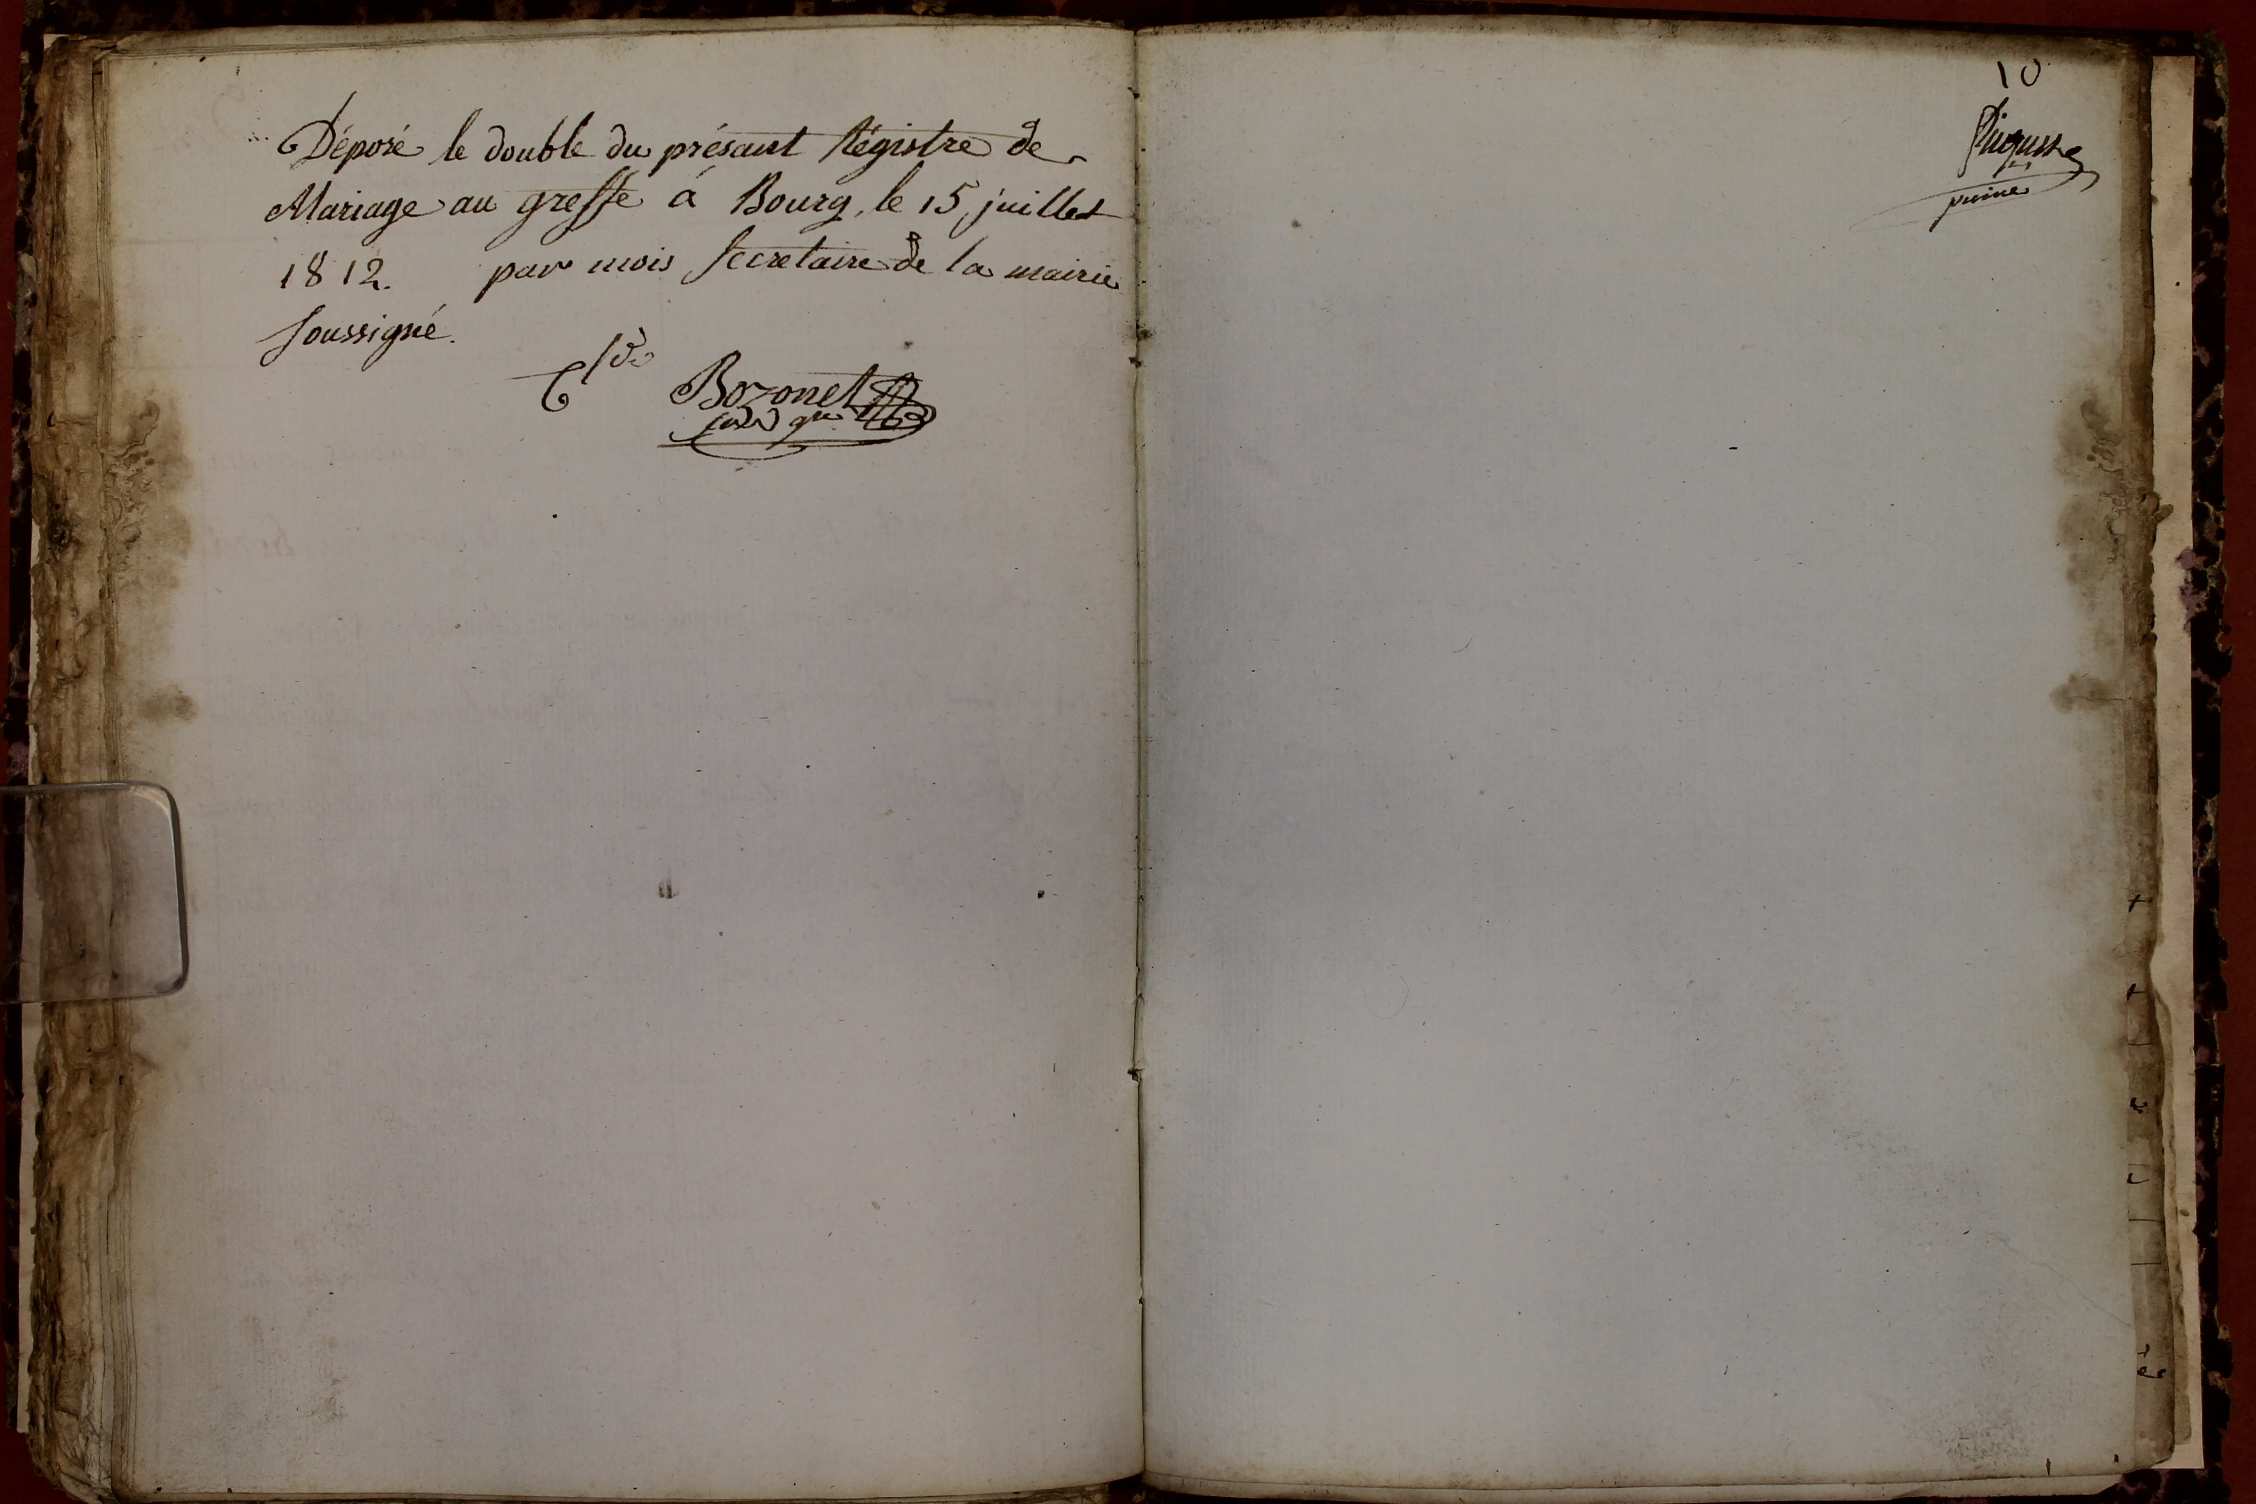 Déposé le double du présant Régistre de
Mariage au greffe á Bourg, le 15 juillet
1812. par mois secretaire de la mairie
soussigné.
Bozonet
10